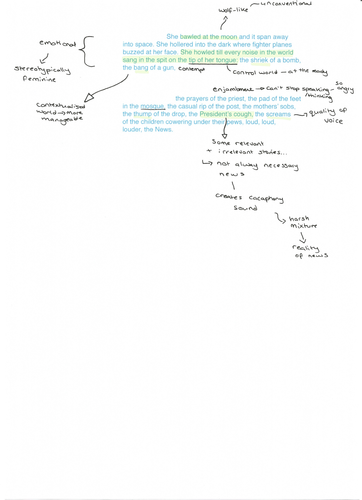 unconventional
wolf-like
She bawled at the moon and it span away
into space. She hollered into the dark where fighter planes
buzzed at her face. She howled till every noise in the world
sang in the spit on the tip of her tongue: the shriek of a bomb,
the bang of a gun,
emotional
stereotypically
feminine
contemp
control world - at the ready
contextualised
world → more
manageable
enjambment → can't stop speaking - so angry
/thinking
the prayers of the priest, the pad of the feet
in the mosque, the casual rip of the post, the mothers' sobs,
the thump of the drop, the President's cough, the screams
of the children cowering under their pews, loud, loud,
louder, the News.
quality of
voice
some relevant
+ irrelevant stories...
↳ not always necessary
news
creates cacophony
sound
↳ harsh
mixture
reality
of news